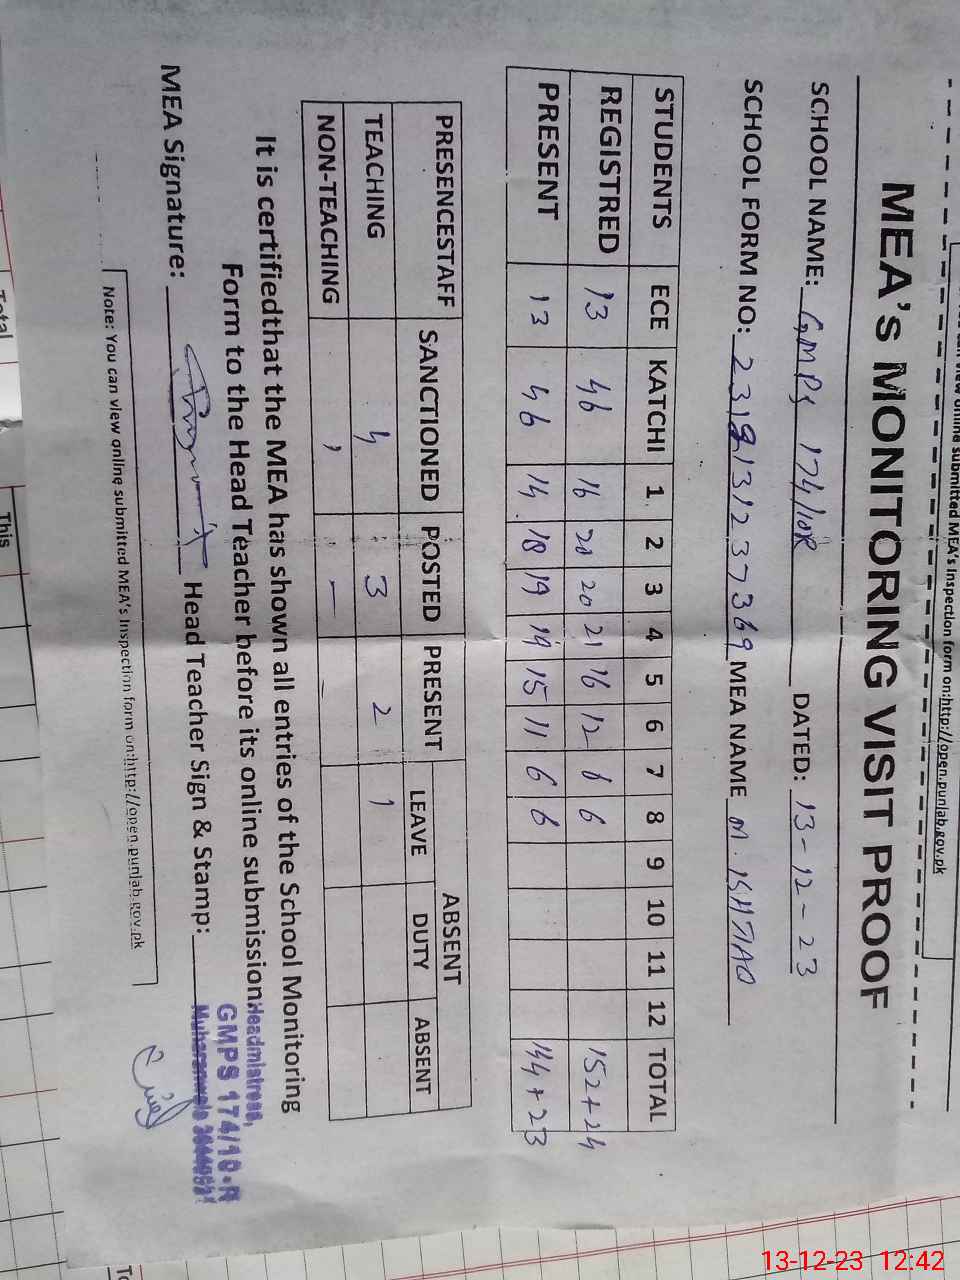 submitted MEA's Inspection form on:http://open.punjab.gov.pk
MEA's MONITORING VISIT PROOF
SCHOOL NAME: GMPS 174/10R DATED: 13-12-23
SCHOOL FORM NO: MEA NAME M.
STUDENTS ECE KATCHI 1 2 3 4 5 6 7 8 9 10 11 12 TOTAL
REGISTRED 13 46 16 20 20 21 16 12 6 6 152+24
PRESENT 13 46 14 18 19 19 15 11 6 6 144+23
PRESENCESTAFF SANCTIONED POSTED PRESENT ABSENT
LEAVE DUTY ABSENT
TEACHING 4 3 2 1
NON-TEACHING , — —
It is certifiedthat the MEA has shown all entries of the School Monitoring
Form to the Head Teacher before its online submission.
Headmistress,
GMPS 174/10-R
MEA Signature: Head Teacher Sign & Stamp:
Note: You can view online submitted MEA's Inspection form on:http://open.punjab.gov.pk
Total
This
13-12-23 12:42